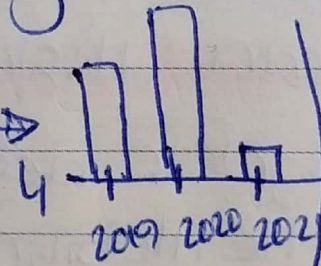 4
2019 2020 2021